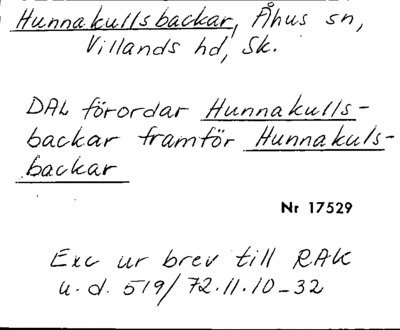 Hunnakullsbackar, Åhus sn,
Villands hd, Sk.
DAL förordar Hunnakulls-
backar framför Hunnakuls-
backar
Nr 17529
Exc ur brev till RAK
u.d. 519/72.11.10-32